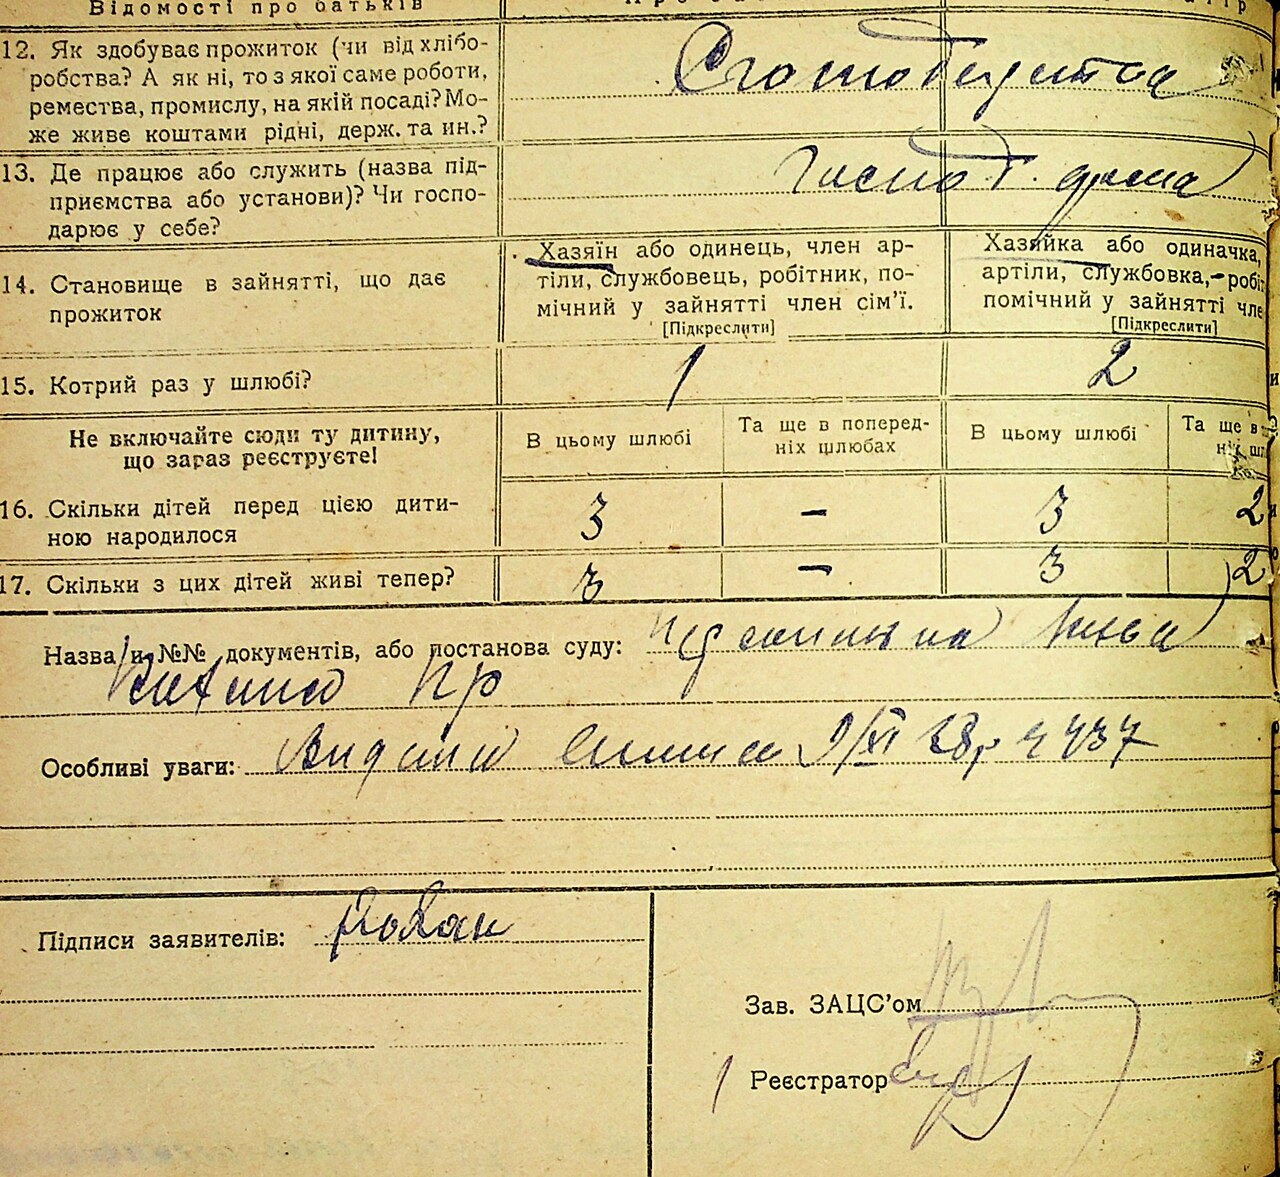 Відомості про батьків
12. Як здобуває прожиток (чи від хлібо-
робства? А як ні, то з якої саме роботи,
ремества, промислу, на якій посаді? Мо-
же живе коштами рідні, держ. та ин.?
13. Де працює або служить (назва під-
приємства або установи)? Чи госпо-
дарює у себе?
Господ. дома
14. Становище в зайнятті, що дає
прожиток
Хазяїн або одинець, член ар-
тіли, службовець, робітник, по-
мічний у зайнятті член сім'ї.
[Підкреслити]
Хазяйка або одиначка,
артіли, службовка, робіт
помічний у зайнятті чле
[Підкреслити]
15. Котрий раз у шлюбі?
1
2
Не включайте сюди ту дитину,
що зараз реєструєте!
В цьому шлюбі
Та ще в поперед-
ніх шлюбах
В цьому шлюбі
Та ще в
ніх шл
16. Скільки дітей перед цією дити-
ною народилося
3 – 3 2
17. Скільки з цих дітей живі тепер?
3 – 3 2
Назва и №№ документів, або постанова суду:
Особливі уваги: 9/XI 28р
Підписи заявителів:
Зав. ЗАЦС'ом
Реєстратор